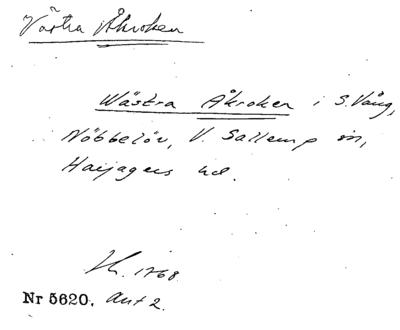 Västra Åkroken
Wästra Åkroken i S. Vång,
Nöbbelöv, V. Sallerup sn,
Harjagers hd.
1768
Nr 5620. Akt 2.